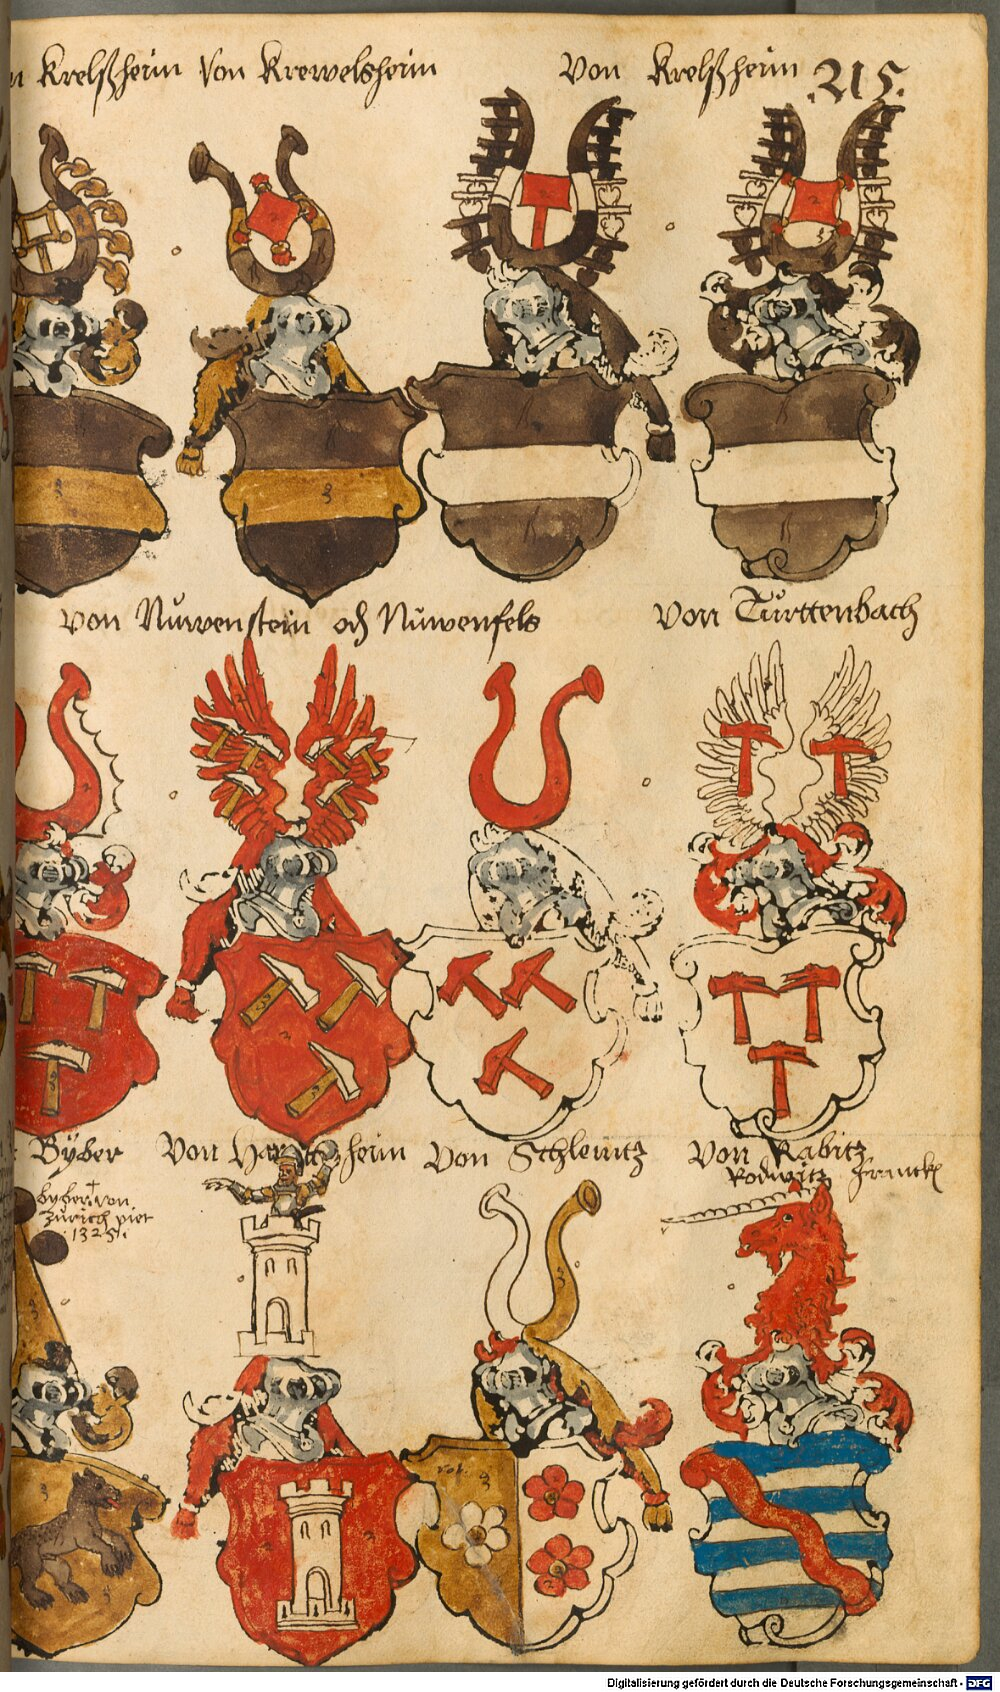 Krelßheim Von Krewelsheim Von Krelßheim .215.
von Nüwenstein oder Nüwenfels Von Türttenbach
Byber Von heim von Schlemitz von Rabitz
Rodwitz Franck
byber von
Zürich piet
.1325.
Digitalisierung gefördert durch die Deutsche Forschungsgemeinschaft - DFG